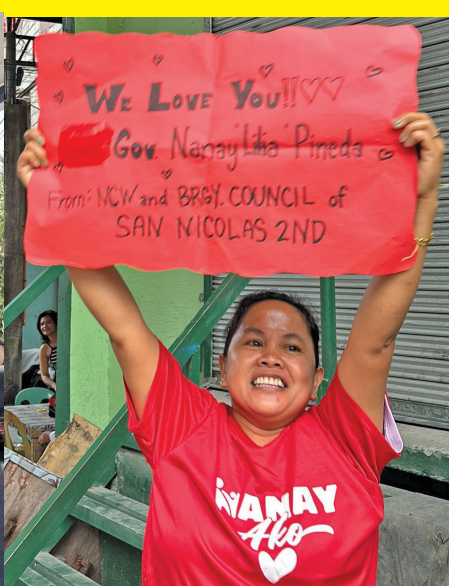 WE LOVE YOU!!
Gov. Nanay "Lilia" Pineda
From: NCW and BRGY. COUNCIL of
SAN NICOLAS 2ND
NANAY
Ako